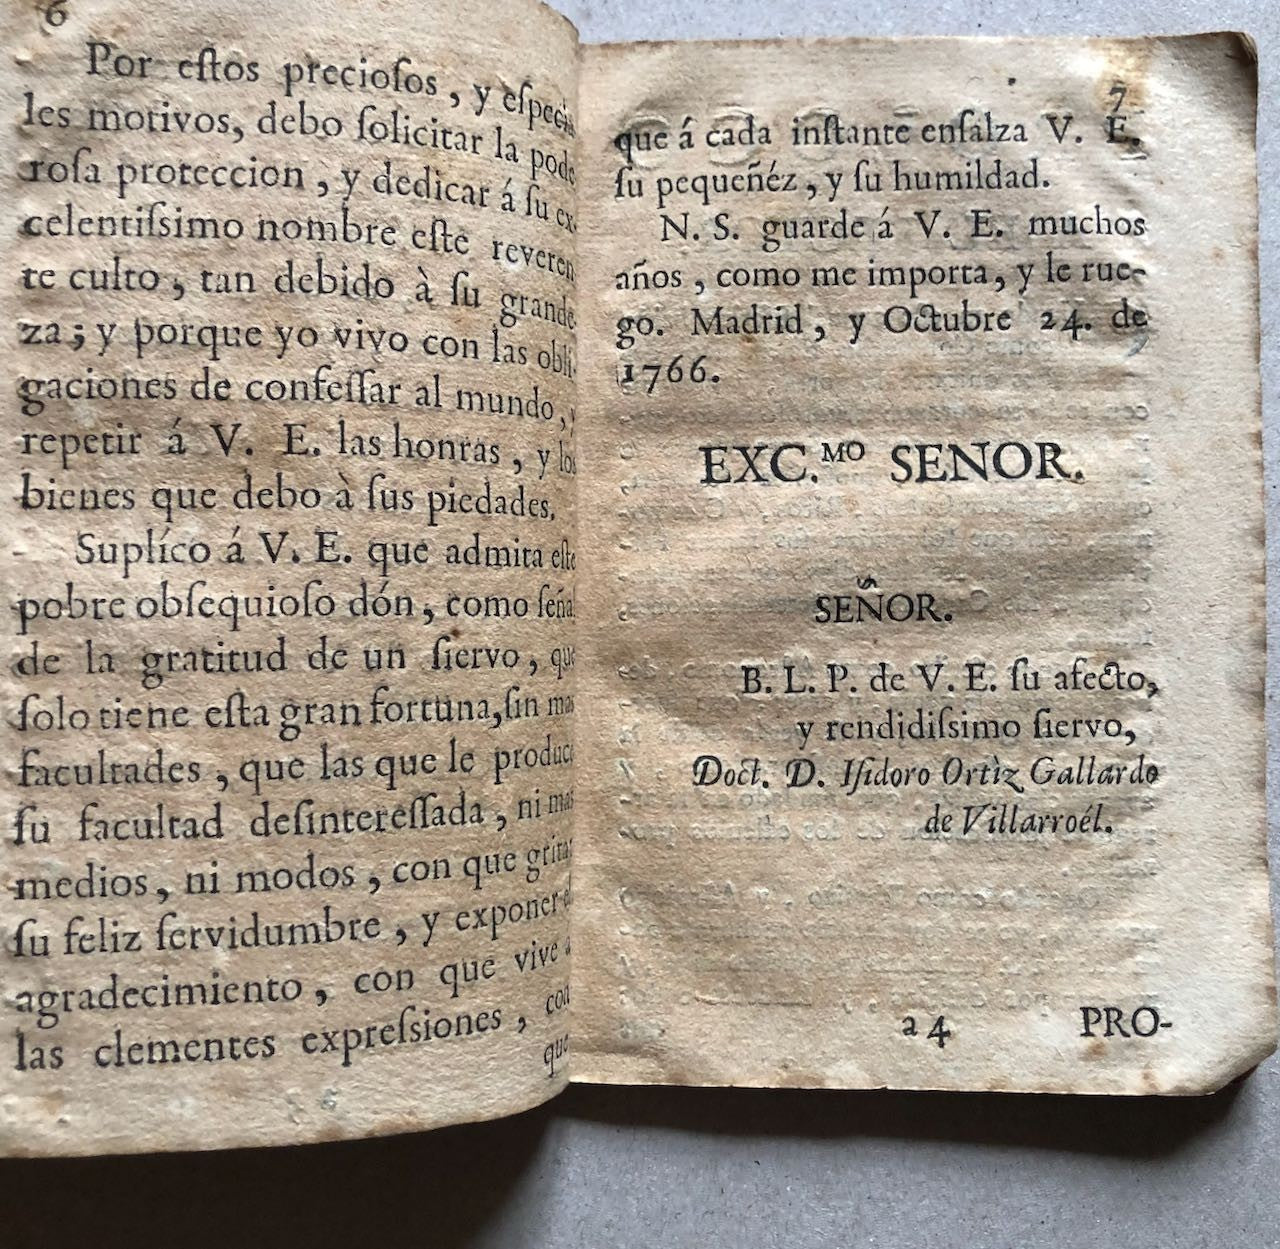 6
Por eſtos precioſos, y eſpecia
les motivos, debo ſolicitar la pode
roſa proteccion, y dedicar á ſu ex-
celentiſsimo nombre eſte reveren
te culto, tan debido à ſu grande
za; y porque yo vivo con las obli-
gaciones de confeſſar al mundo, y
repetir á V. E. las honras, y los
bienes que debo à ſus piedades.
Suplíco á V. E. que admita eſte
pobre obſequioſo dón, como ſeñal
de la gratitud de un ſiervo, que
ſolo tiene eſta gran fortuna, ſin mas
facultades, que las que le produce
ſu facultad deſintereſſada, ni mas
medios, ni modos, con que gritar
ſu feliz ſervidumbre, y exponer el
agradecimiento, con que vive a
las clementes expreſsiones, con
que
7
que á cada inſtante enſalza V. E.
ſu pequeñéz, y ſu humildad.
N. S. guarde á V. E. muchos
años, como me importa, y le rue-
go. Madrid, y Octubre 24. de
1766.
EXC.MO SENOR.
SEÑOR.
B. L. P. de V. E. ſu afecto,
y rendidiſsimo ſiervo,
Doct. D. Iſidoro Ortìz Gallardo
de Villarroél.
a4 PRO-